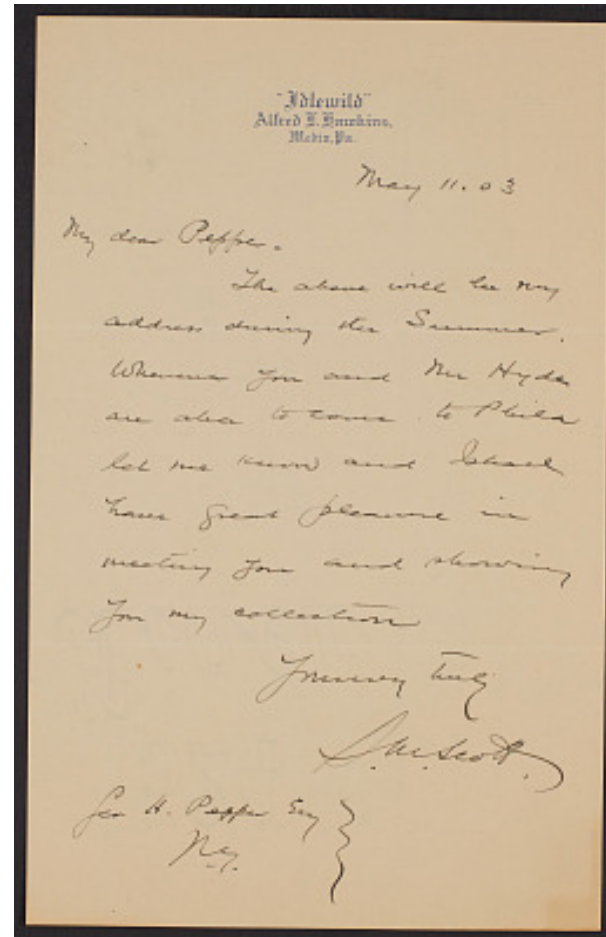 "Idlewild"
Alfred L. Hawkins,
Media, Pa.
May 11. 03
My dear Pepper.
The above will be my
address during the Summer.
Whenever you and Mr Hyde
are able to come to Phila
let me know and I shall
have great pleasure in
meeting you and showing
you my collection
Yours very truly
S.W. Scott.
Geo H. Pepper Esq
N.Y.